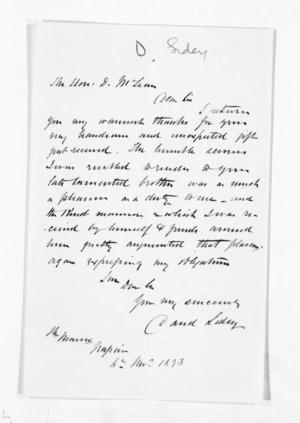 D. Sidey
The Hon: D. McLean
Dear Sir
I return
you my warmest thanks for your
very handsome and unexpected gift
just received. The humble service
I was enabled to render to your
late lamented brother was as much
a pleasure as a duty to me - and
the kind manner in which I was re-
ceived by himself & friends around
him greatly augmented that pleasure
again expressing my obligations
I am Dear Sir
Your very sincerely
David Sidey
The Manse
Napier
4th Novr 1873